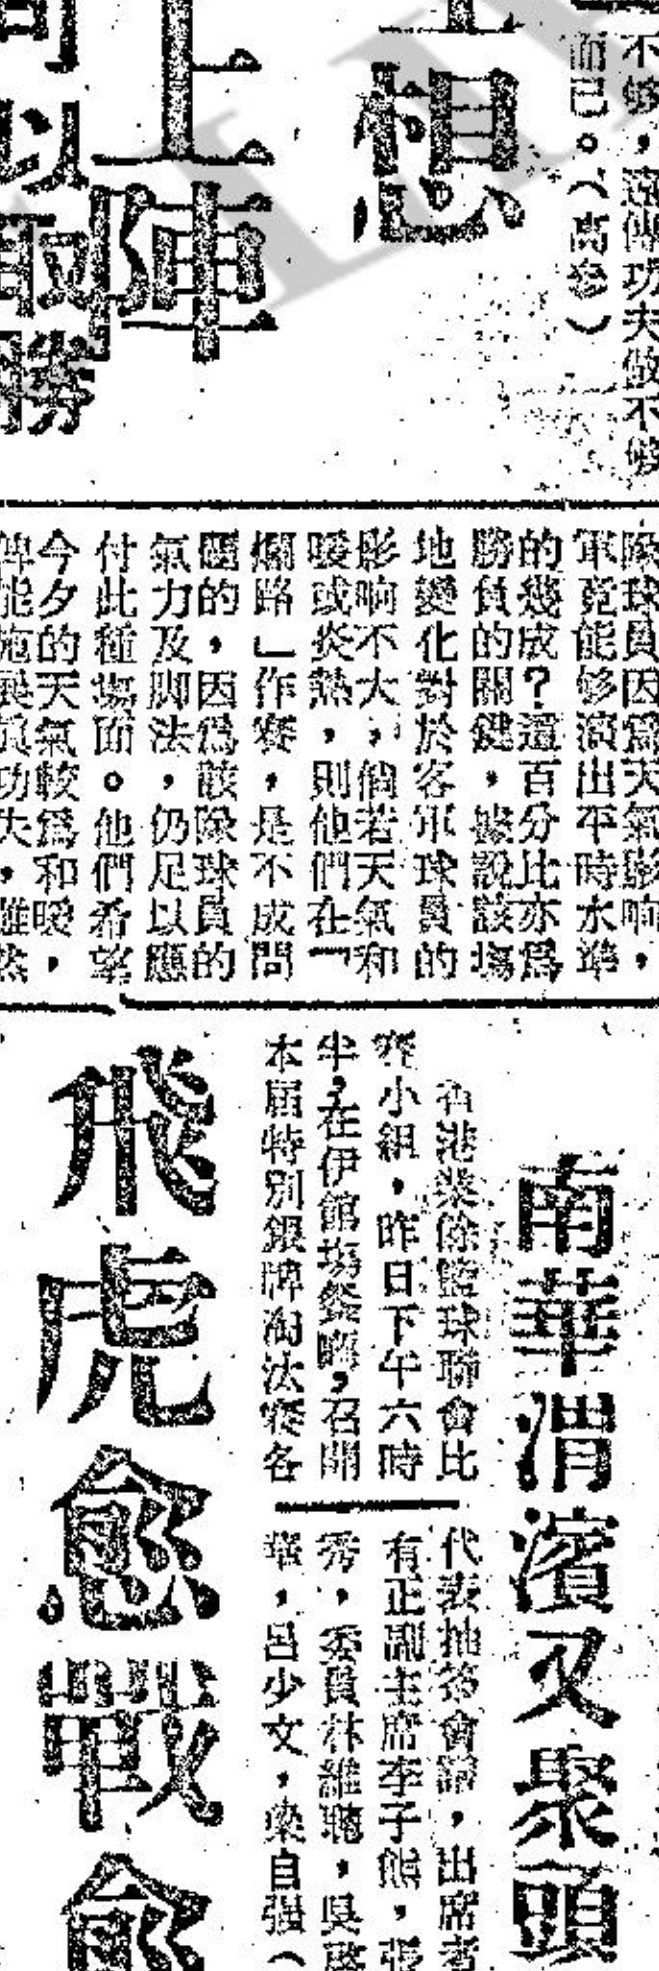 不够,遠傳功夫做不够
而已。(高參)
想
上陣
可以取勝
隊球員因爲天氣影响,
軍竟能够演出平時水準
的幾成?這百分比亦爲
勝負的關鍵,據説該塲
地變化對於客軍球員的
影响不大,倘若天氣和
暖或炎熱,則他們在「
爛路」作賽,是不成問
題的,因爲該隊球員的
氣力及脚法,仍足以應
付此種塲面。他們希望
今夕的天氣較爲和暖,
俾能施展眞功夫,雖然
南華渭濱又聚頭
香港業餘籃球聯會比
賽小組,昨日下午六時
半,在伊館塲餐廳,召開
本屆特別銀牌淘汰賽各
代表抽籤會議,出席者
有正副主席李子熊,張
秀,委員林維聰,吳啟
華,呂少文,梁自强(
飛虎愈戰愈